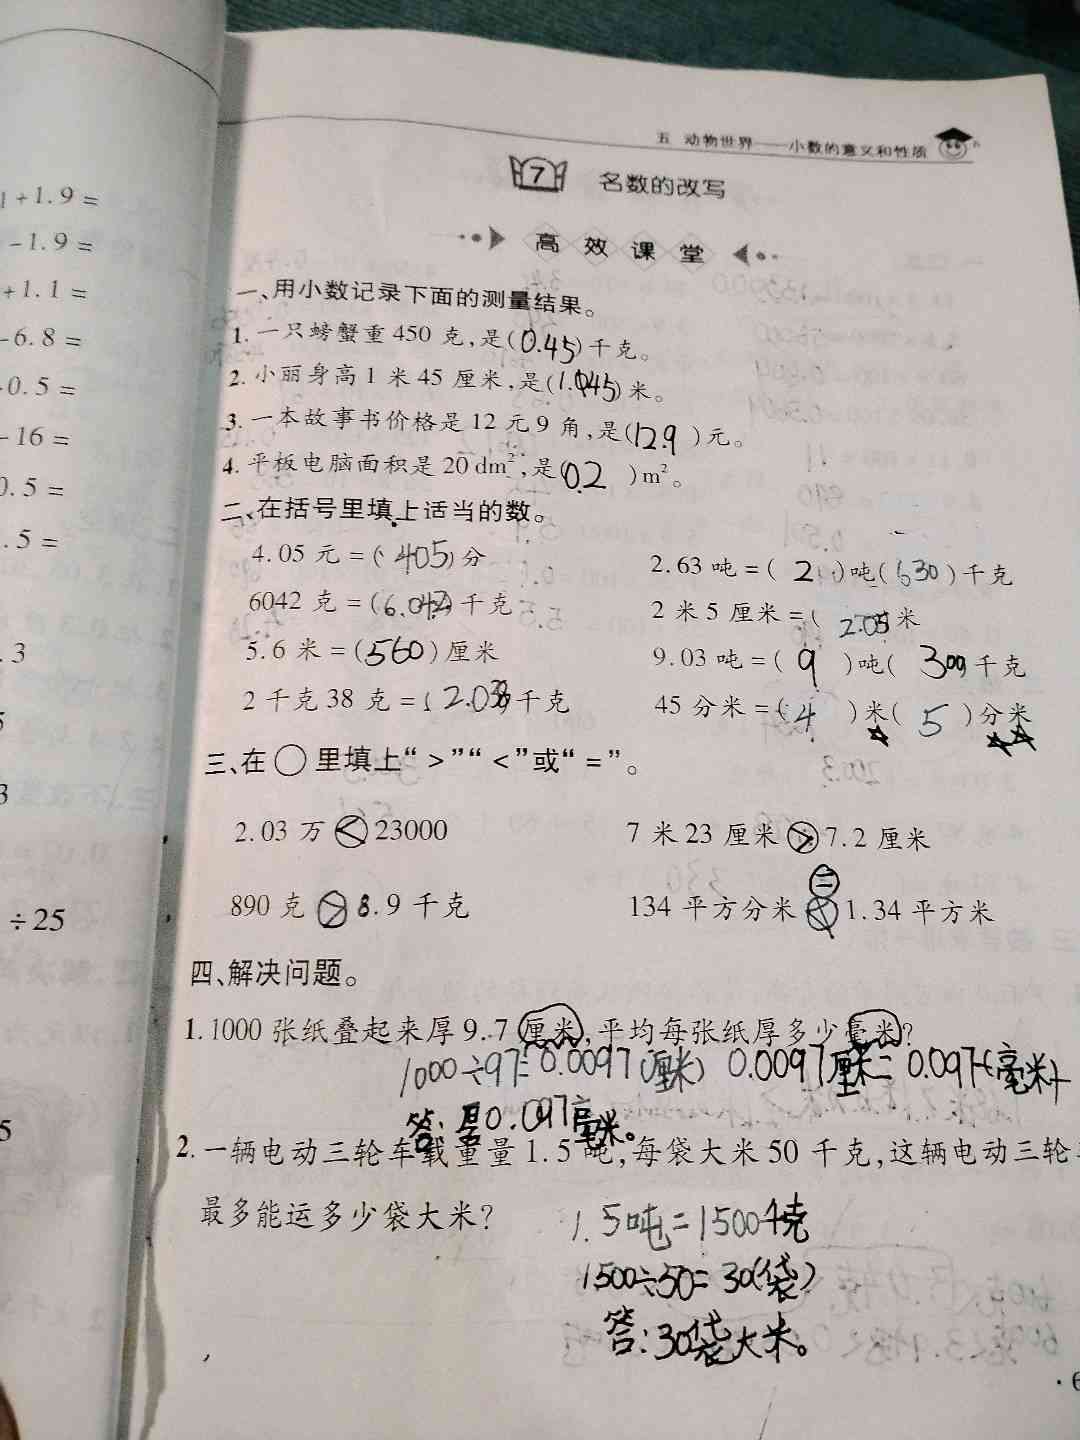 1+1.9=
-1.9=
+1.1=
-6.8=
0.5=
-16=
0.5=
.5=
.3
3
÷25
5
五 动物世界——小数的意义和性质
7 名数的改写
高效课堂
一、用小数记录下面的测量结果。
1. 一只螃蟹重450克,是(0.45)千克。
2. 小丽身高1米45厘米,是(1.45)米。
3. 一本故事书价格是12元9角,是(12.9)元。
4. 平板电脑面积是20 dm²,是(0.2)m²。
二、在括号里填上适当的数。
4.05元=(405)分 2.63吨=(2)吨(630)千克
6042克=(6.042)千克 2米5厘米=(2.05)米
5.6米=(560)厘米 9.03吨=(9)吨(30)千克
2千克38克=(2.038)千克 45分米=(4)米(5)分米
三、在○里填上“>”“<”或“=”。
2.03万<23000 7米23厘米>7.2厘米
890克>8.9千克 134平方分米=1.34平方米
四、解决问题。
1.1000张纸叠起来厚9.7厘米,平均每张纸厚多少毫米?
1000÷97=0.0097(厘米) 0.0097厘米=0.097(毫米)
答:是0.097毫米。
2.一辆电动三轮车载重量1.5吨,每袋大米50千克,这辆电动三轮
最多能运多少袋大米?
1.5吨=1500千克
1500÷50=30(袋)
答:30袋大米。
·6